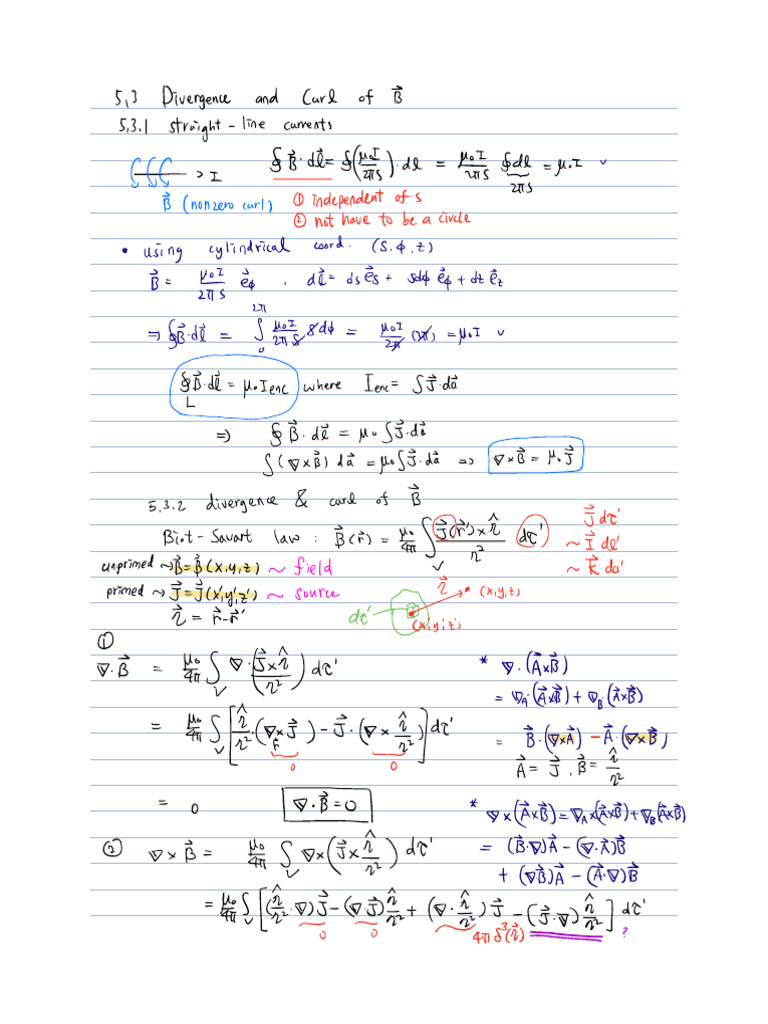 5.3 Divergence and Curl of B⃗
5.3.1 straight-line currents
∮B⃗·dl⃗ = ∮(μ₀I/2πs)·dl = μ₀I/2πs ∮dl = μ₀I ✓
2πs
> I
B⃗ (nonzero curl)
① independent of s
② not have to be a circle
• using cylindrical coord. (s, φ, z)
B⃗ = μ₀I/2πs e⃗φ , dl⃗ = ds e⃗s + sdφ e⃗φ + dz e⃗z
⇒ ∮B⃗·dl⃗ = ∫₀^2π μ₀I/2πs sdφ = μ₀I/2π (2π) = μ₀I ✓
∮_L B⃗·dl⃗ = μ₀Ienc where Ienc = ∫J⃗·da⃗
⇒ ∮B⃗·dl⃗ = μ₀∫J⃗·da⃗
∫(∇×B⃗) da⃗ = μ₀∫J⃗·da⃗ ⇒ ∇×B⃗ = μ₀J⃗
5.3.2 divergence & curl of B⃗
Biot-Savart law : B⃗(r⃗) = μ₀/4π ∫_V J⃗(r⃗')×r̂/r² dτ'
J⃗dτ'
~ I⃗ dl'
~ K⃗ da'
unprimed ~> B⃗ = B⃗(x,y,z) ~ field
primed ~> J⃗ = J⃗(x',y',z') ~ source
r⃗ = r⃗-r⃗'
dτ'
r⃗
(x,y,z)
(x',y',z')
①
∇·B⃗ = μ₀/4π ∫_V ∇·(J⃗×r̂/r²) dτ'
= μ₀/4π ∫_V [r̂/r²·(∇×J⃗) - J⃗·(∇×r̂/r²)] dτ'
r⃗'
0 0
= 0 ∇·B⃗=0
* ∇·(A⃗×B⃗)
= ∇A·(A⃗×B⃗) + ∇B·(A⃗×B⃗)
= B⃗·(∇×A⃗) - A⃗·(∇×B⃗)
A⃗ = J⃗, B⃗ = r̂/r²
* ∇×(A⃗×B⃗) = ∇A×(A⃗×B⃗) + ∇B(A⃗×B⃗)
= (B⃗·∇)A⃗ - (∇·A⃗)B⃗
+ (∇B⃗)A⃗ - (A⃗·∇)B⃗
② ∇×B⃗ = μ₀/4π ∫_V ∇×(J⃗×r̂/r²) dτ'
= μ₀/4π ∫_V [(r̂/r²·∇)J⃗ - (∇·J⃗)r̂/r² + (∇·r̂/r²)J⃗ - (J⃗·∇)r̂/r²] dτ'
0 0 4πδ³(r⃗) ?